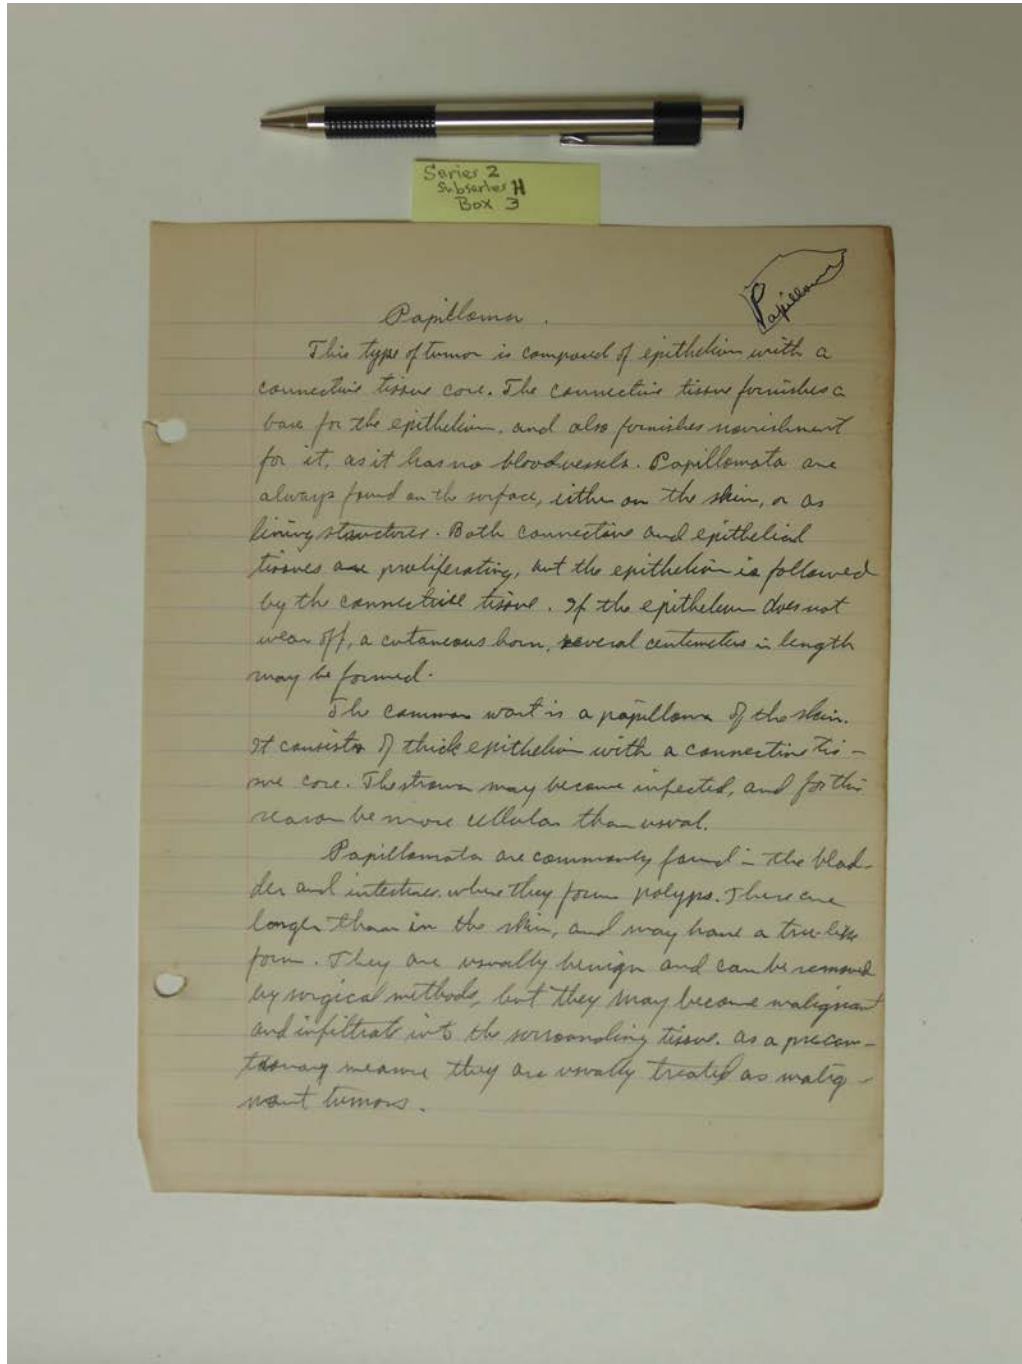 Series 2
Subseries H
Box 3
Papilloma
Papilloma.
This type of tumor is composed of epithelium with a
connective tissue core. The connective tissue furnishes a
base for the epithelium, and also furnishes nourishment
for it, as it has no bloodvessels. Papillomata are
always found on the surface, either on the skin, or as
lining structures. Both connective and epithelial
tissues are proliferating, but the epithelium is followed
by the connective tissue. If the epithelium does not
wear off, a cutaneous horn, several centimeters in length
may be formed.
The common wart is a papilloma of the skin.
It consists of thick epithelium with a connective tis-
sue core. The stroma may become infected, and for this
reason be more cellular than usual.
Papillomata are commonly found in the blad-
der and intestines where they form polyps. These are
longer than in the skin, and may have a tree-like
form. They are usually benign and can be removed
by surgical methods, but they may become malignant
and infiltrate into the surrounding tissue. As a precau-
tionary measure they are usually treated as malig-
nant tumors.